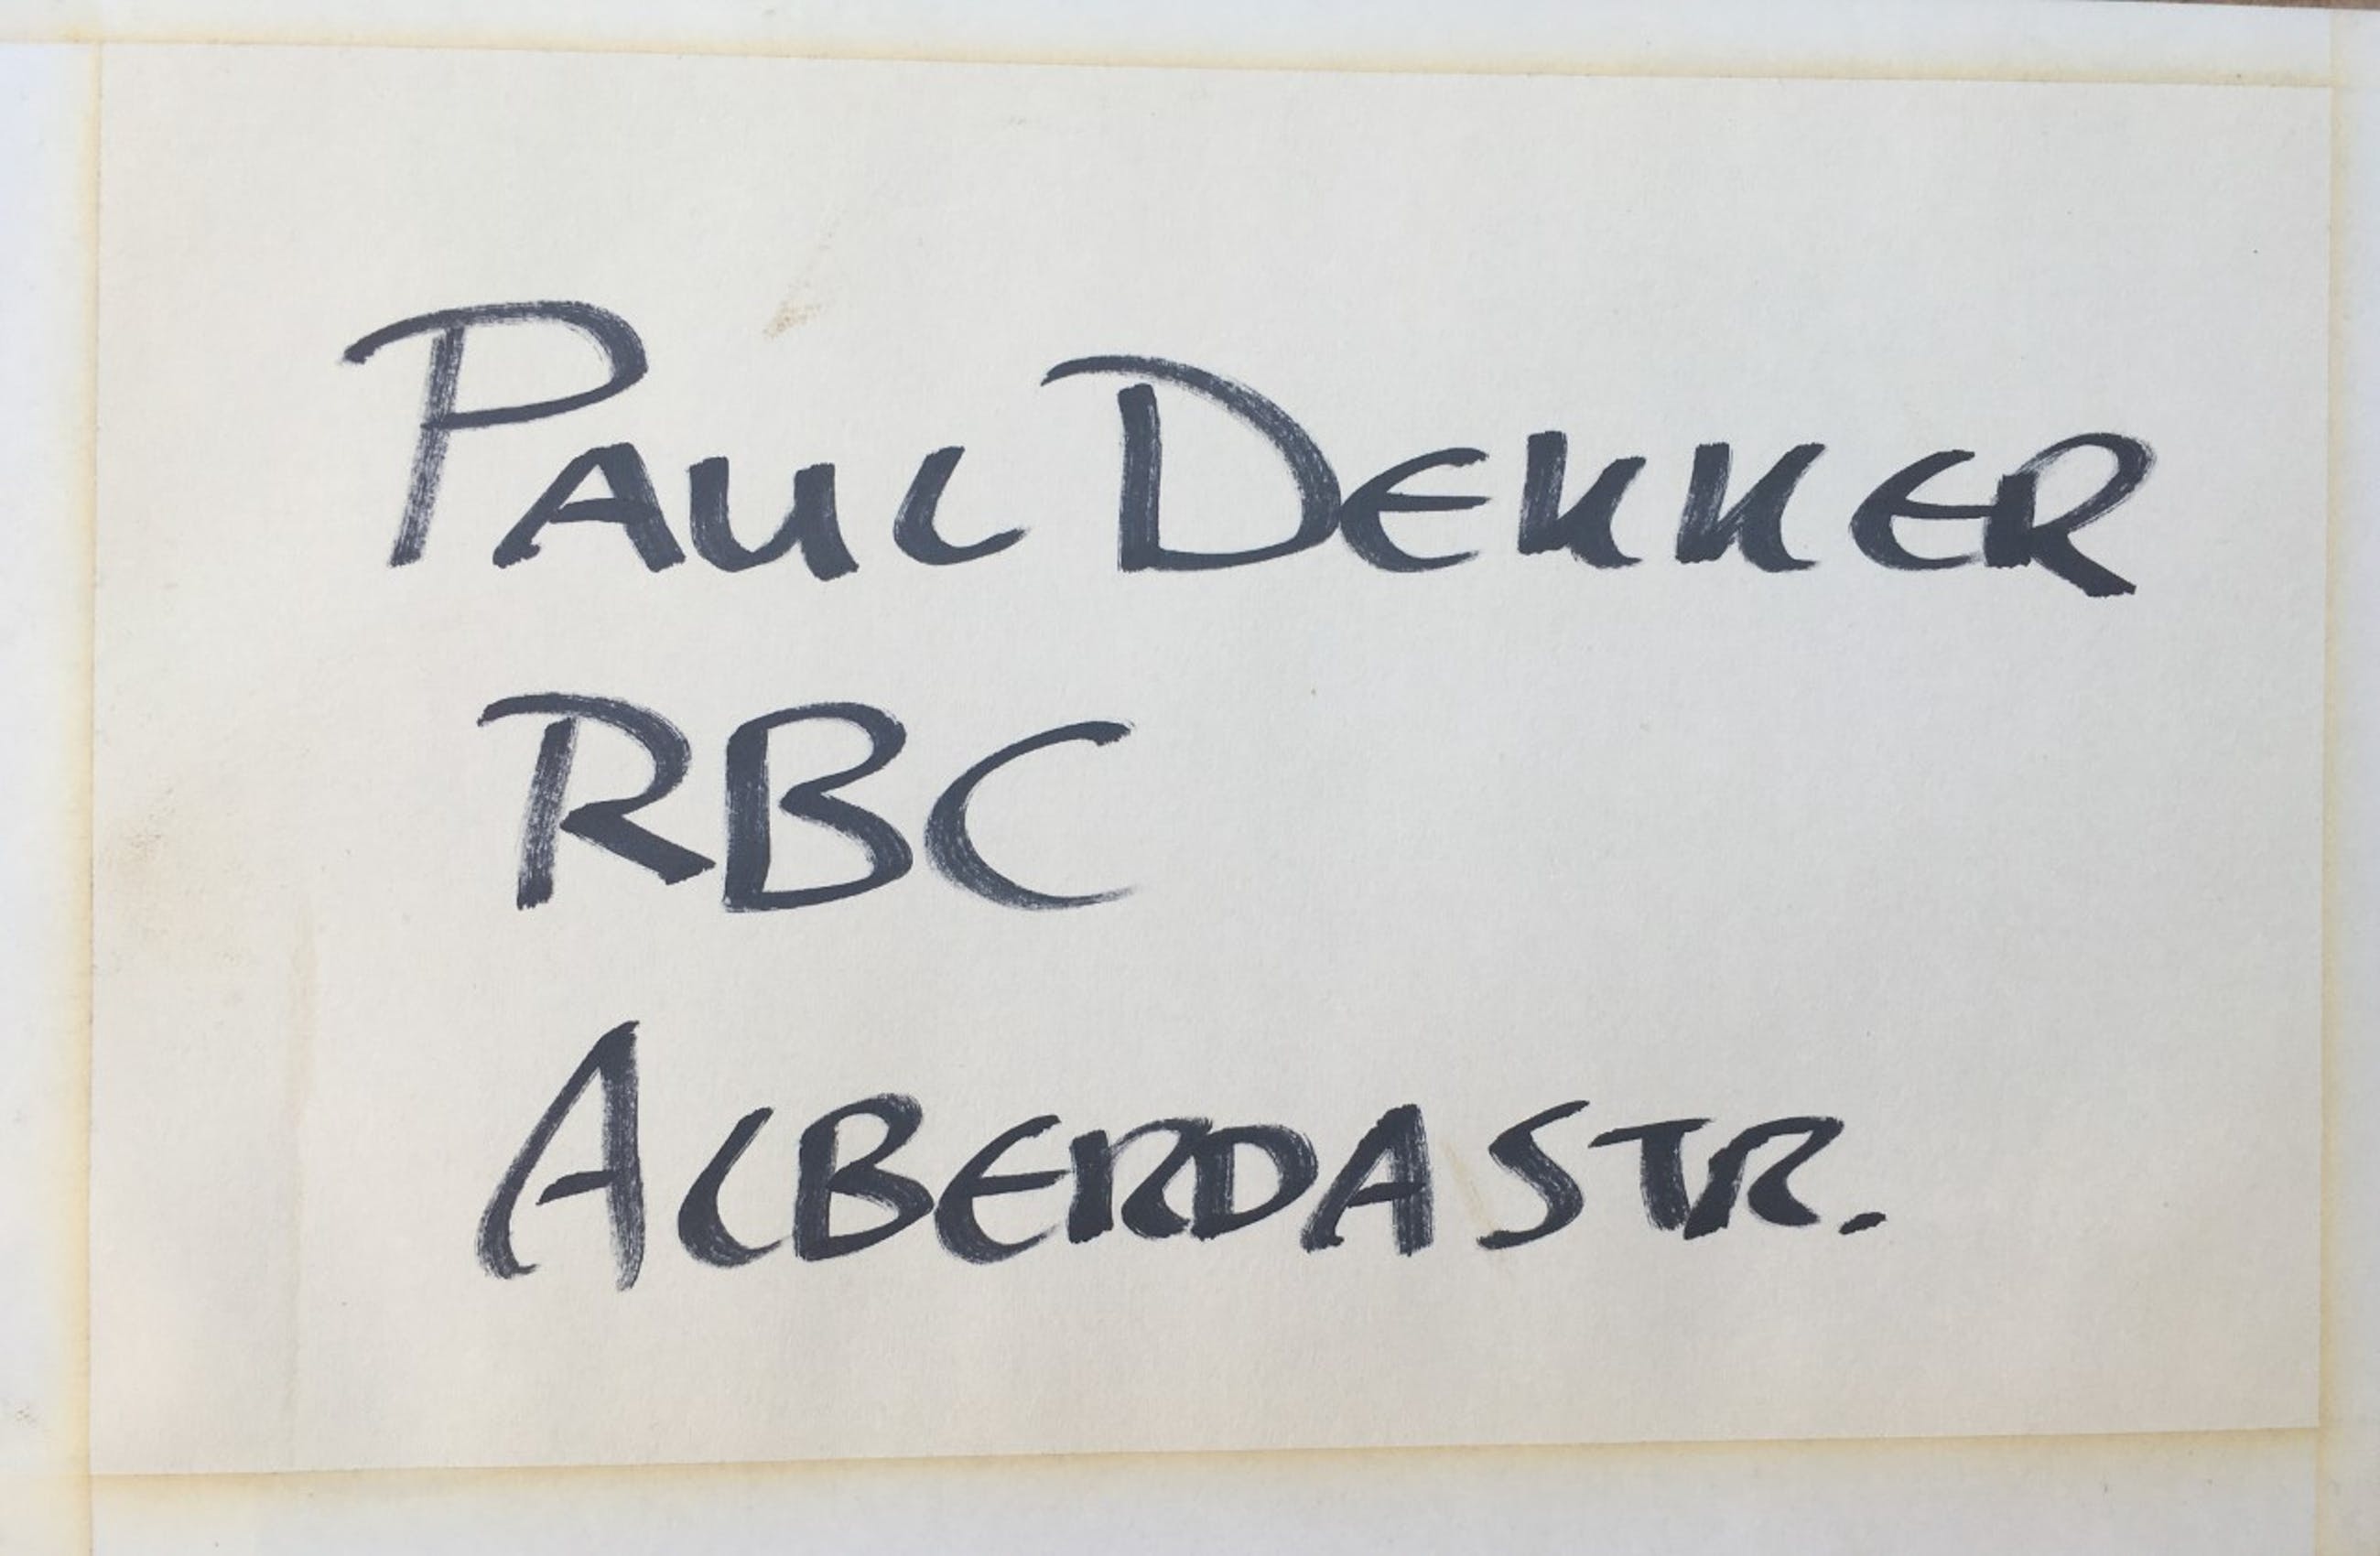 Paul Dekker
RBC
Alberdastr.